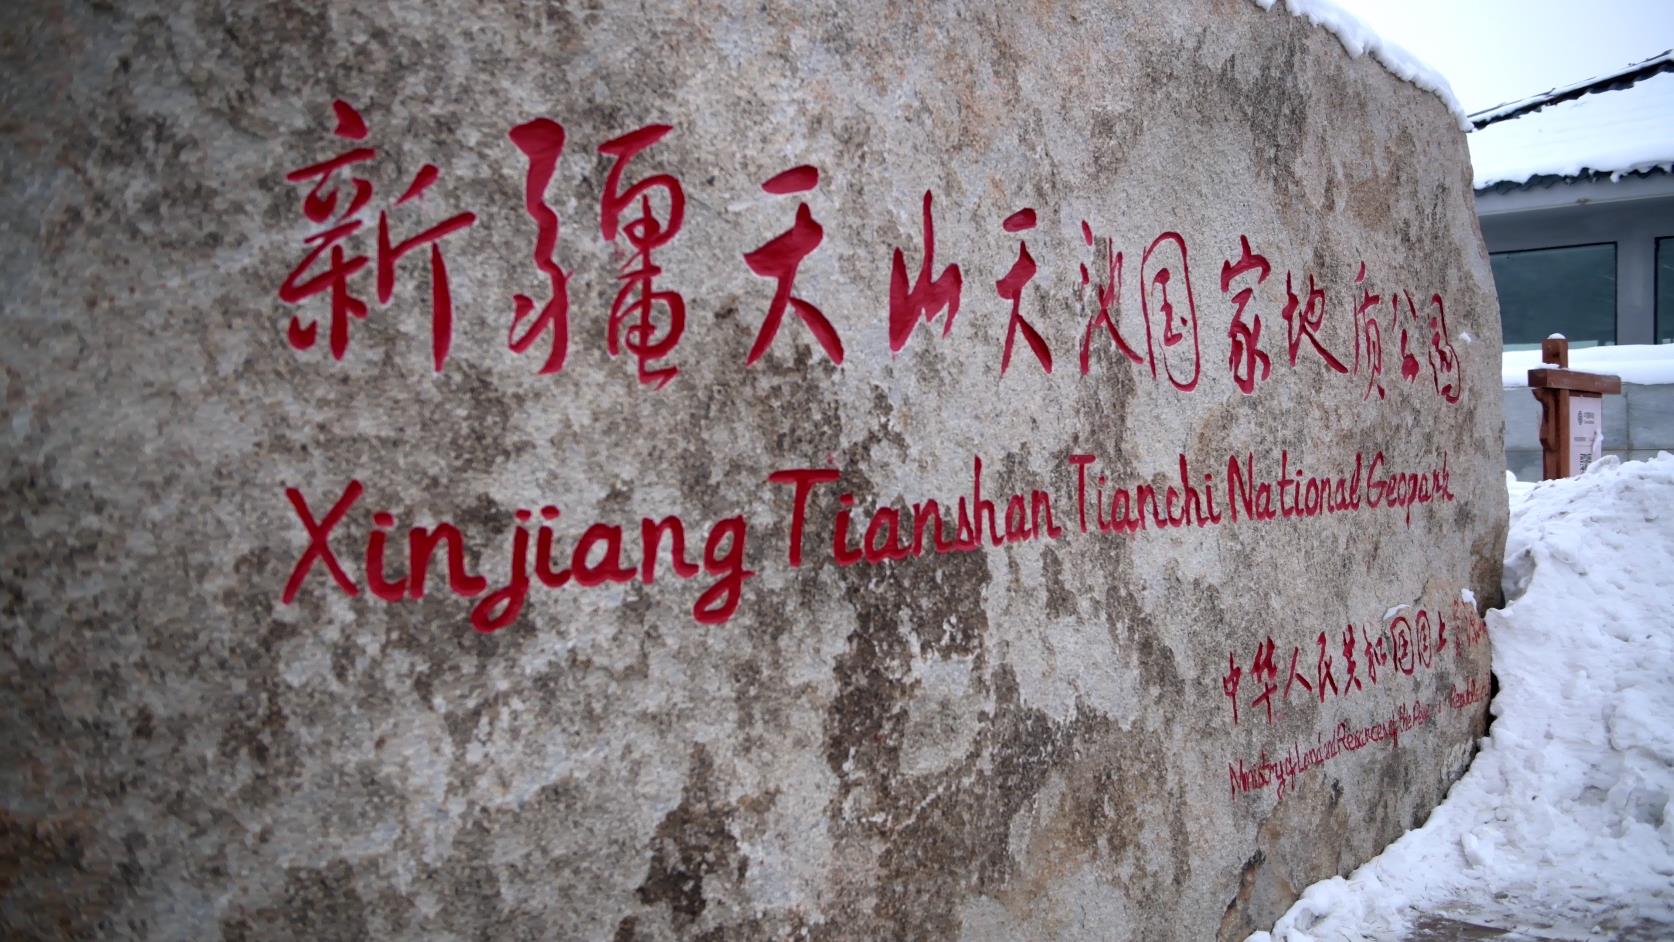 新疆天山天池国家地质公园
Xinjiang Tianshan Tianchi National Geopark
中华人民共和国国土
Ministry of Land and Resources of the Republic